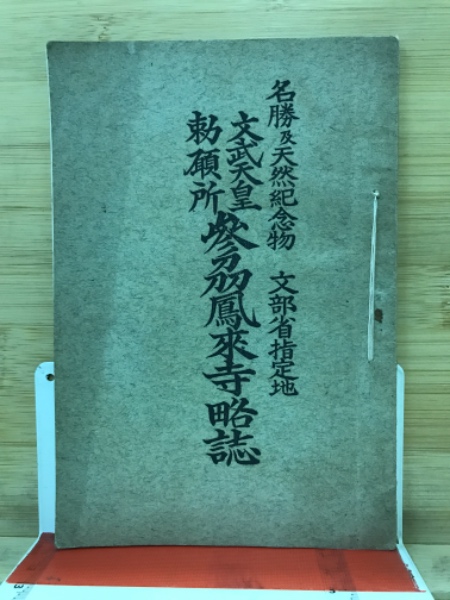 名勝及天然紀念物 文部省指定地
文武天皇
勅願所
参州鳳來寺略誌